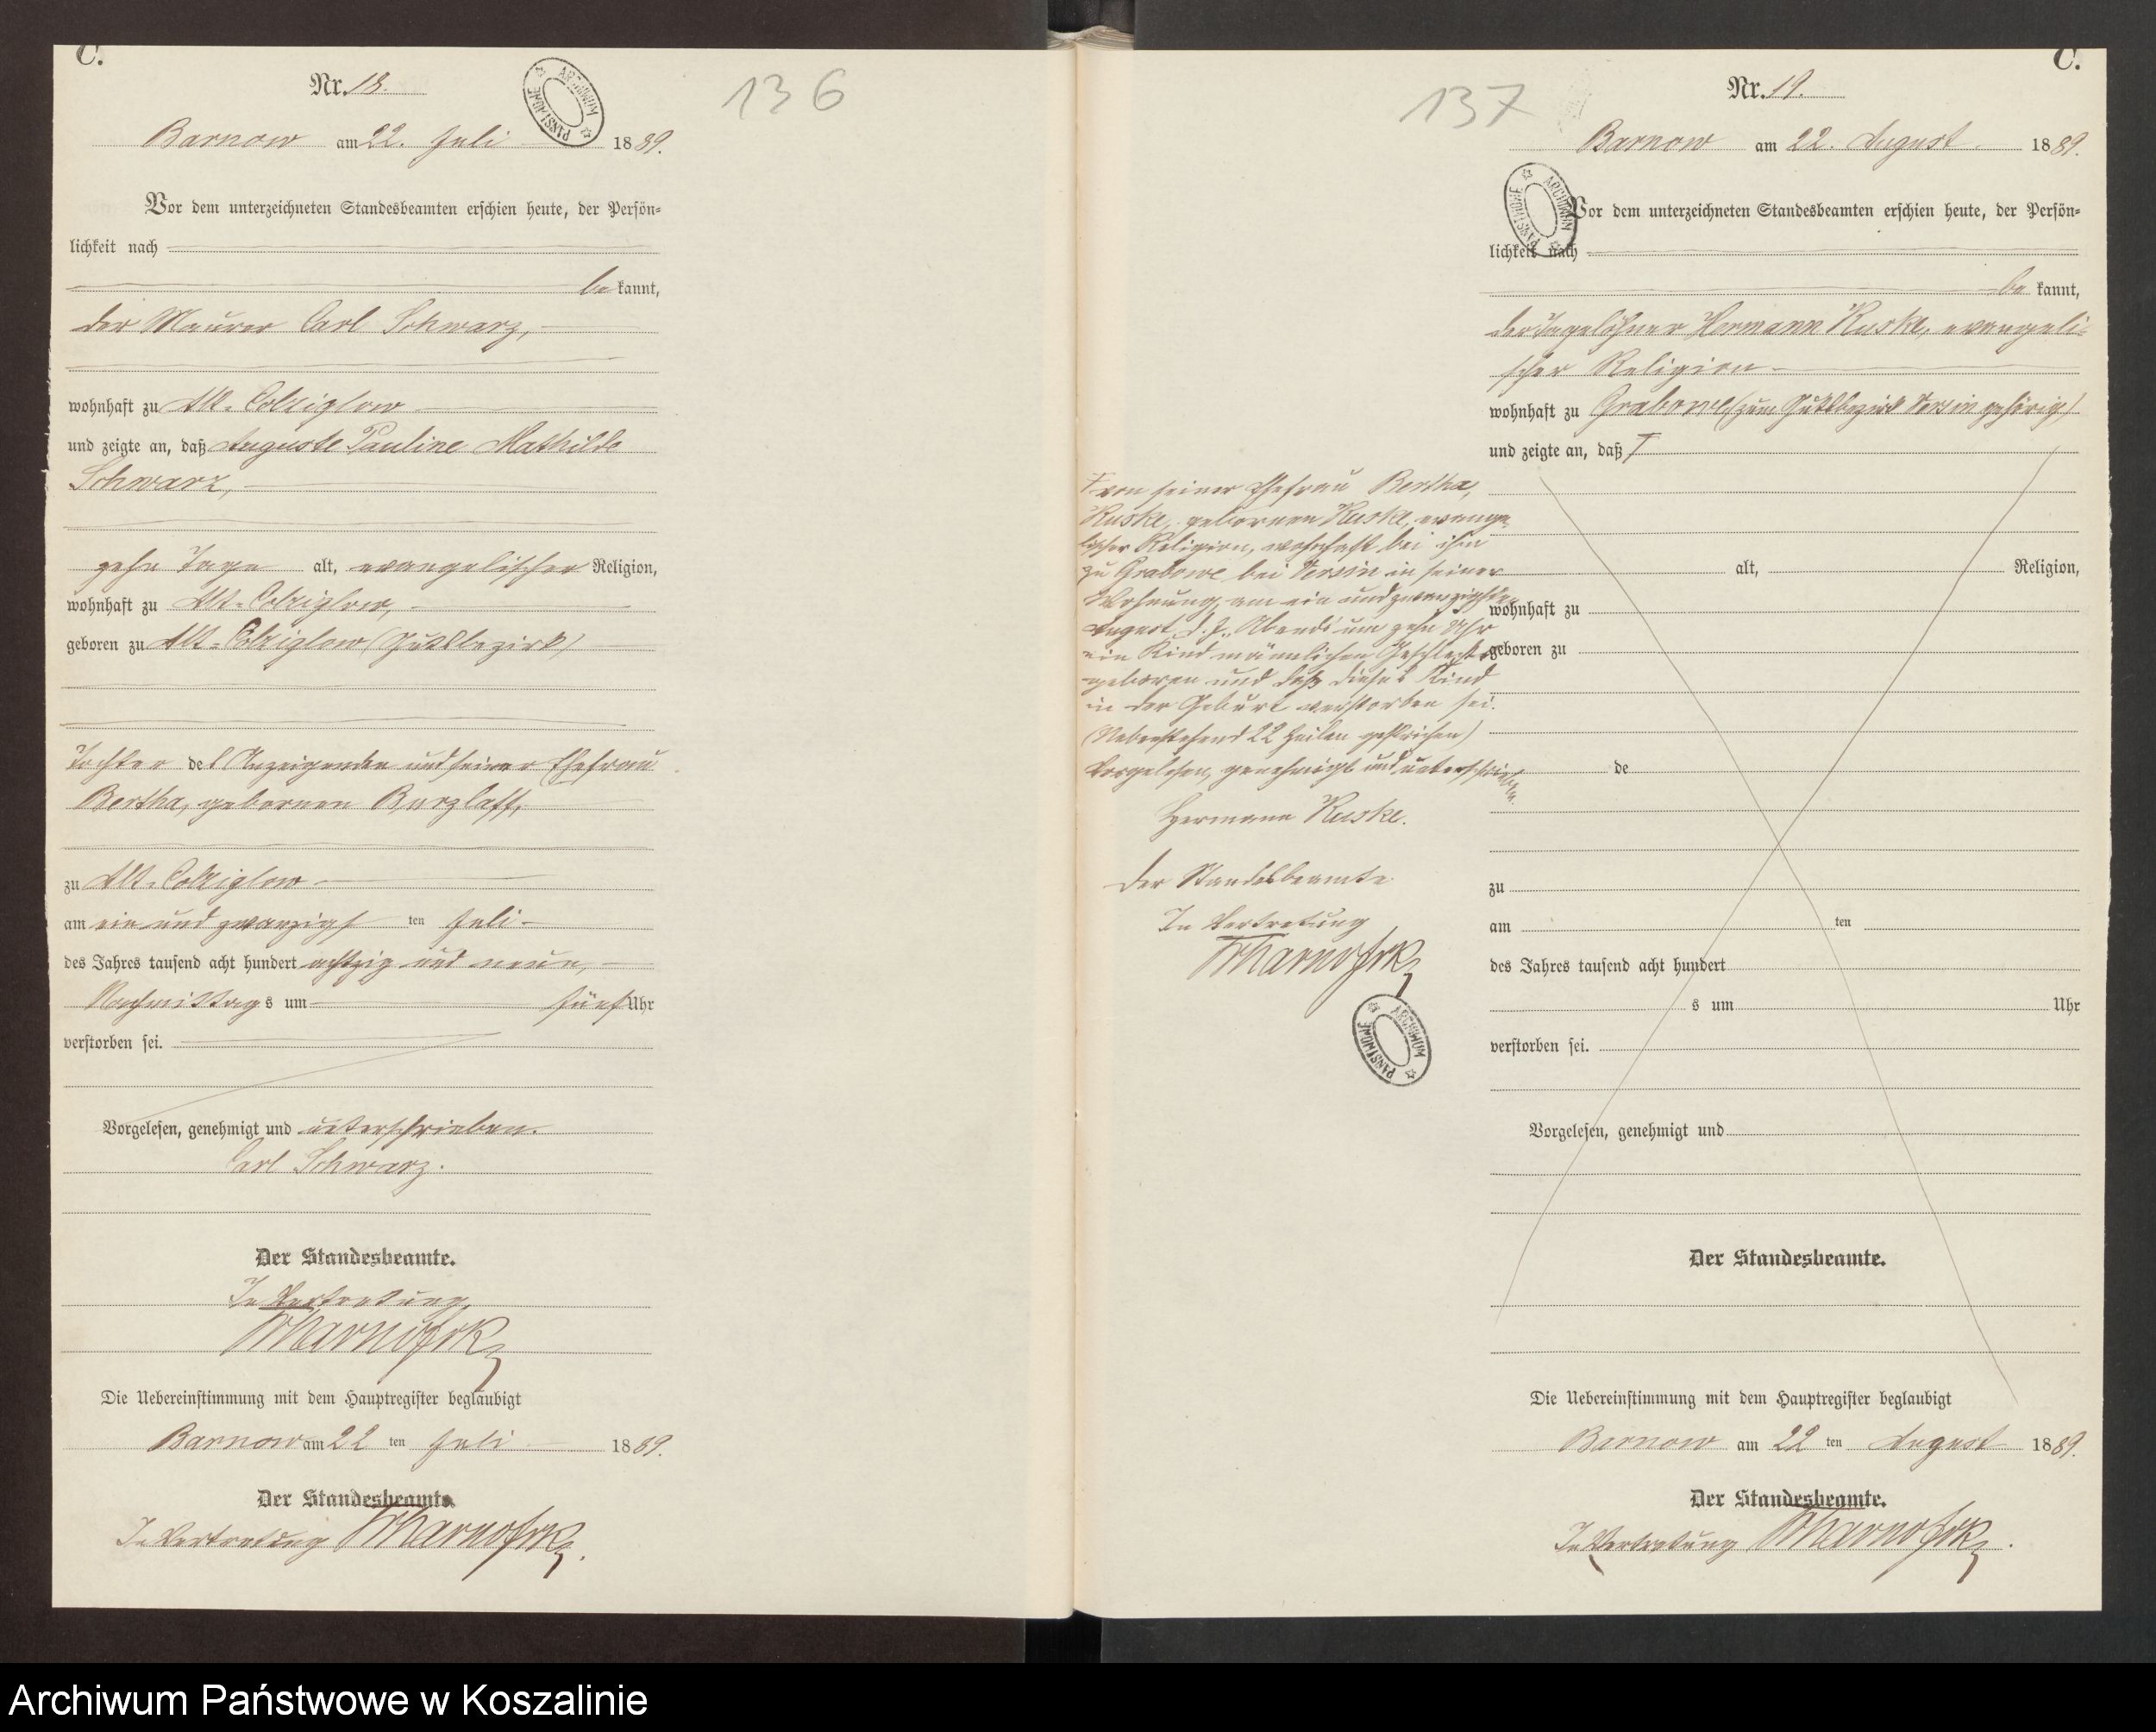 C.
Nr. 18.
136
Barnow am 22. Juli 1889.
Vor dem unterzeichneten Standesbeamten erschien heute, der Persön-
lichkeit nach
bekannt,
der Maurer Carl Schwarz,
wohnhaft zu Alt-Colziglow
und zeigte an, daß Auguste Pauline Mathilde
Schwarz,
zehn Tage alt, evangelischer Religion,
wohnhaft zu Alt-Colziglow,
geboren zu Alt-Colziglow (Gutsbezirk)
Tochter des Anzeigenden und seiner Ehefrau
Bertha, gebornen Burzlaff,
zu Alt-Colziglow
am ein und zwanzigsten Juli
des Jahres tausend acht hundert achtzig und neun,
Nachmittags um fünf Uhr
verstorben sei.
Vorgelesen, genehmigt und unterschrieben.
Carl Schwarz.
Der Standesbeamte.
In Vertretung
Die Uebereinstimmung mit dem Hauptregister beglaubigt
Barnow am 22 ten Juli 1889.
Der Standesbeamte.
In Vertretung
ARCHIWUM PAŃSTWOWE
C.
Nr. 19.
137
Barnow am 22. August 1889.
Vor dem unterzeichneten Standesbeamten erschien heute, der Persön-
lichkeit nach
bekannt,
der Tagelöhner Hermann Kuske, evangeli-
scher Religion
wohnhaft zu Grabowe (zum Gutsbezirk Versin gehörig)
und zeigte an, daß
von seiner Ehefrau Bertha,
Kuske, gebornen Kuske, evange-
lischer Religion, wohnhaft bei ihm
zu Grabowe bei Versin in seiner
Wohnung, am ein und zwanzigsten
August d. J., Abends um zehn Uhr
ein Kind männlichen Geschlechts
geboren und daß dieses Kind
in der Geburt verstorben sei.
(Nebenstehend 22 Zeilen gestrichen)
Vorgelesen, genehmigt und unterschrieben.
Hermann Kuske.
Der Standesbeamte
In Vertretung
ARCHIWUM PAŃSTWOWE
alt, Religion,
wohnhaft zu
geboren zu
de
zu
am ten
des Jahres tausend acht hundert
s um Uhr
verstorben sei.
Vorgelesen, genehmigt und
Der Standesbeamte.
Die Uebereinstimmung mit dem Hauptregister beglaubigt
Barnow am 22 ten August 1889.
Der Standesbeamte.
In Vertretung
Archiwum Państwowe w Koszalinie